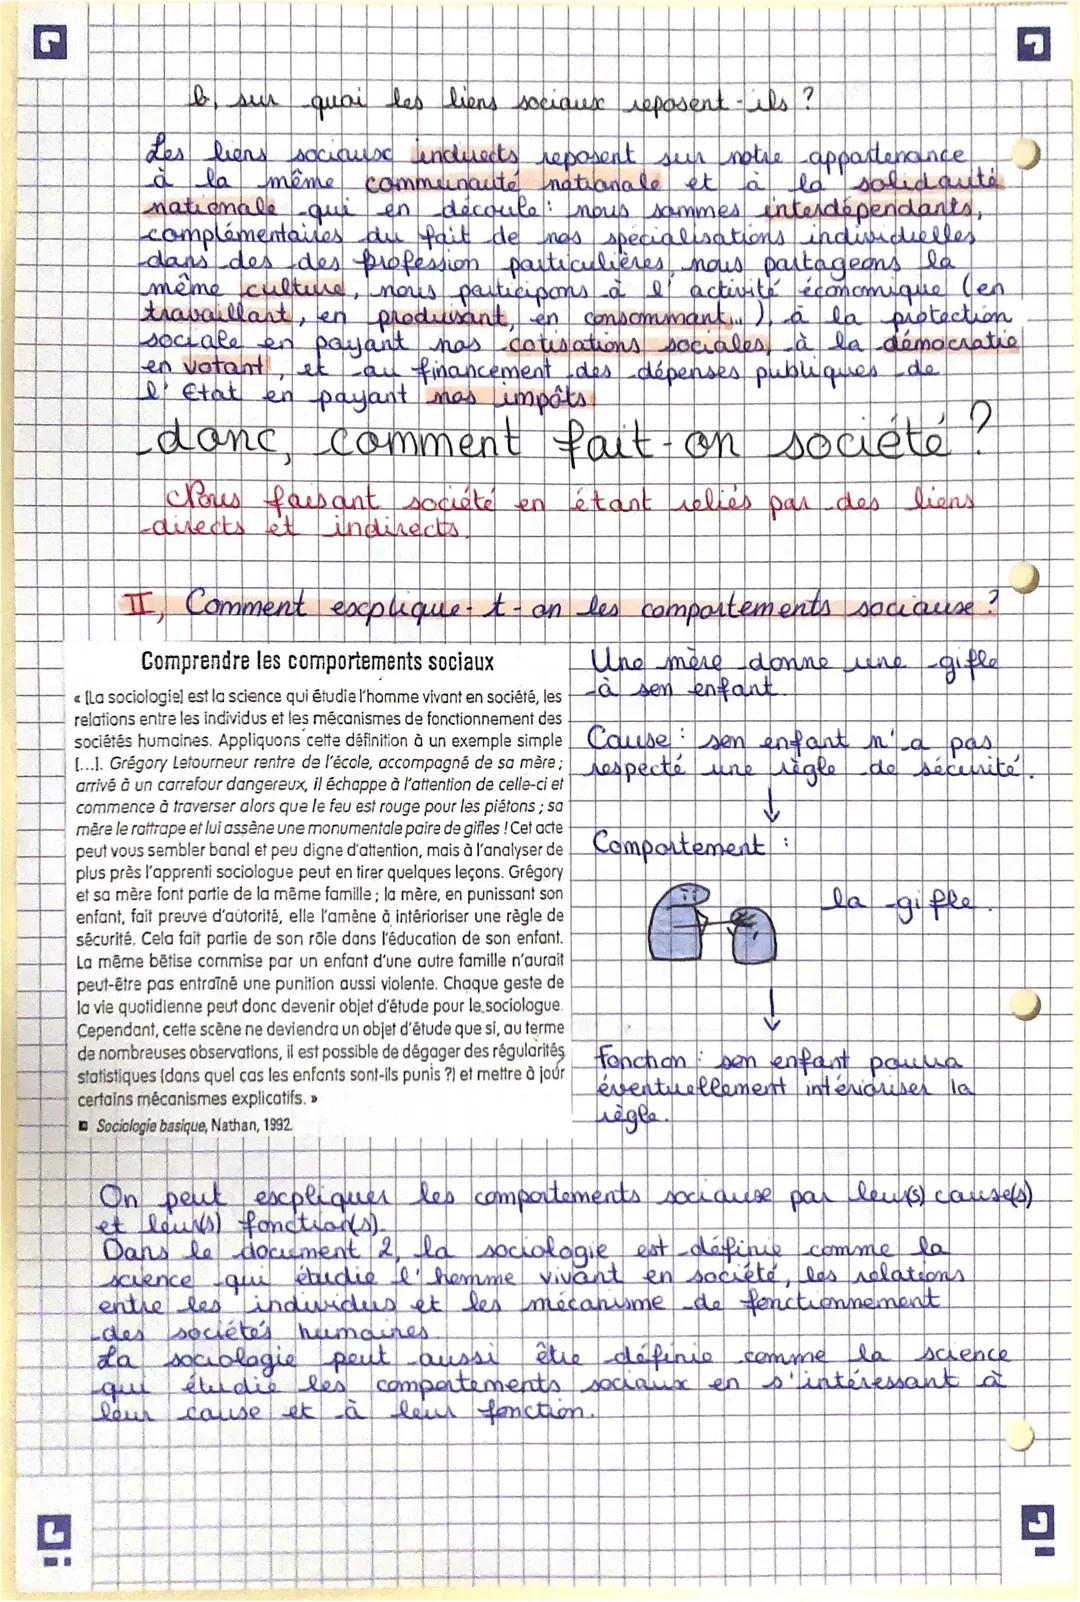 b, sur quoi les liens sociaux reposent-ils ?
Les liens sociaux indirects reposent sur notre appartenance
à la même communauté nationale et à la solidarité
nationale qui en découle : nous sommes interdépendants,
complémentaires du fait de nos spécialisations individuelles
dans des des profession particulières, nous partageons la
même culture, nous participons à l'activité économique (en
travaillant, en produisant, en consommant...), à la protection
sociale en payant nos cotisations sociales, à la démocratie
en votant, et au financement des dépenses publiques de
l'Etat en payant nos impôts
donc, comment fait-on société ?
Nous faisant société en étant reliés par des liens
directs et indirects.
II, Comment explique-t-on les comportements sociaux ?
Comprendre les comportements sociaux
« [La sociologie] est la science qui étudie l'homme vivant en société, les
relations entre les individus et les mécanismes de fonctionnement des
sociétés humaines. Appliquons cette définition à un exemple simple
[...]. Grégory Letourneur rentre de l'école, accompagné de sa mère ;
arrivé à un carrefour dangereux, il échappe à l'attention de celle-ci et
commence à traverser alors que le feu est rouge pour les piétons ; sa
mère le rattrape et lui assène une monumentale paire de gifles ! Cet acte
peut vous sembler banal et peu digne d'attention, mais à l'analyser de
plus près l'apprenti sociologue peut en tirer quelques leçons. Grégory
et sa mère font partie de la même famille ; la mère, en punissant son
enfant, fait preuve d'autorité, elle l'amène à intérioriser une règle de
sécurité. Cela fait partie de son rôle dans l'éducation de son enfant.
La même bêtise commise par un enfant d'une autre famille n'aurait
peut-être pas entraîné une punition aussi violente. Chaque geste de
la vie quotidienne peut donc devenir objet d'étude pour le sociologue.
Cependant, cette scène ne deviendra un objet d'étude que si, au terme
de nombreuses observations, il est possible de dégager des régularités
statistiques (dans quel cas les enfants sont-ils punis ?) et mettre à jour
certains mécanismes explicatifs. »
Sociologie basique, Nathan, 1992.
Une mère donne une gifle
à son enfant.
Cause : son enfant n'a pas
respecté une règle de sécurité.
Comportement :
la gifle.
Fonction : son enfant pourra
éventuellement intérioriser la
règle.
On peut expliquer les comportements sociaux par leur(s) cause(s)
et leur(s) fonction(s).
Dans le document 2, la sociologie est définie comme la
science qui étudie l'homme vivant en société, les relations
entre les individus et les mécanisme de fonctionnement
des sociétés humaines.
La sociologie peut aussi être définie comme la science
qui étudie les comportements sociaux en s'intéressant à
leur cause et à leur fonction.